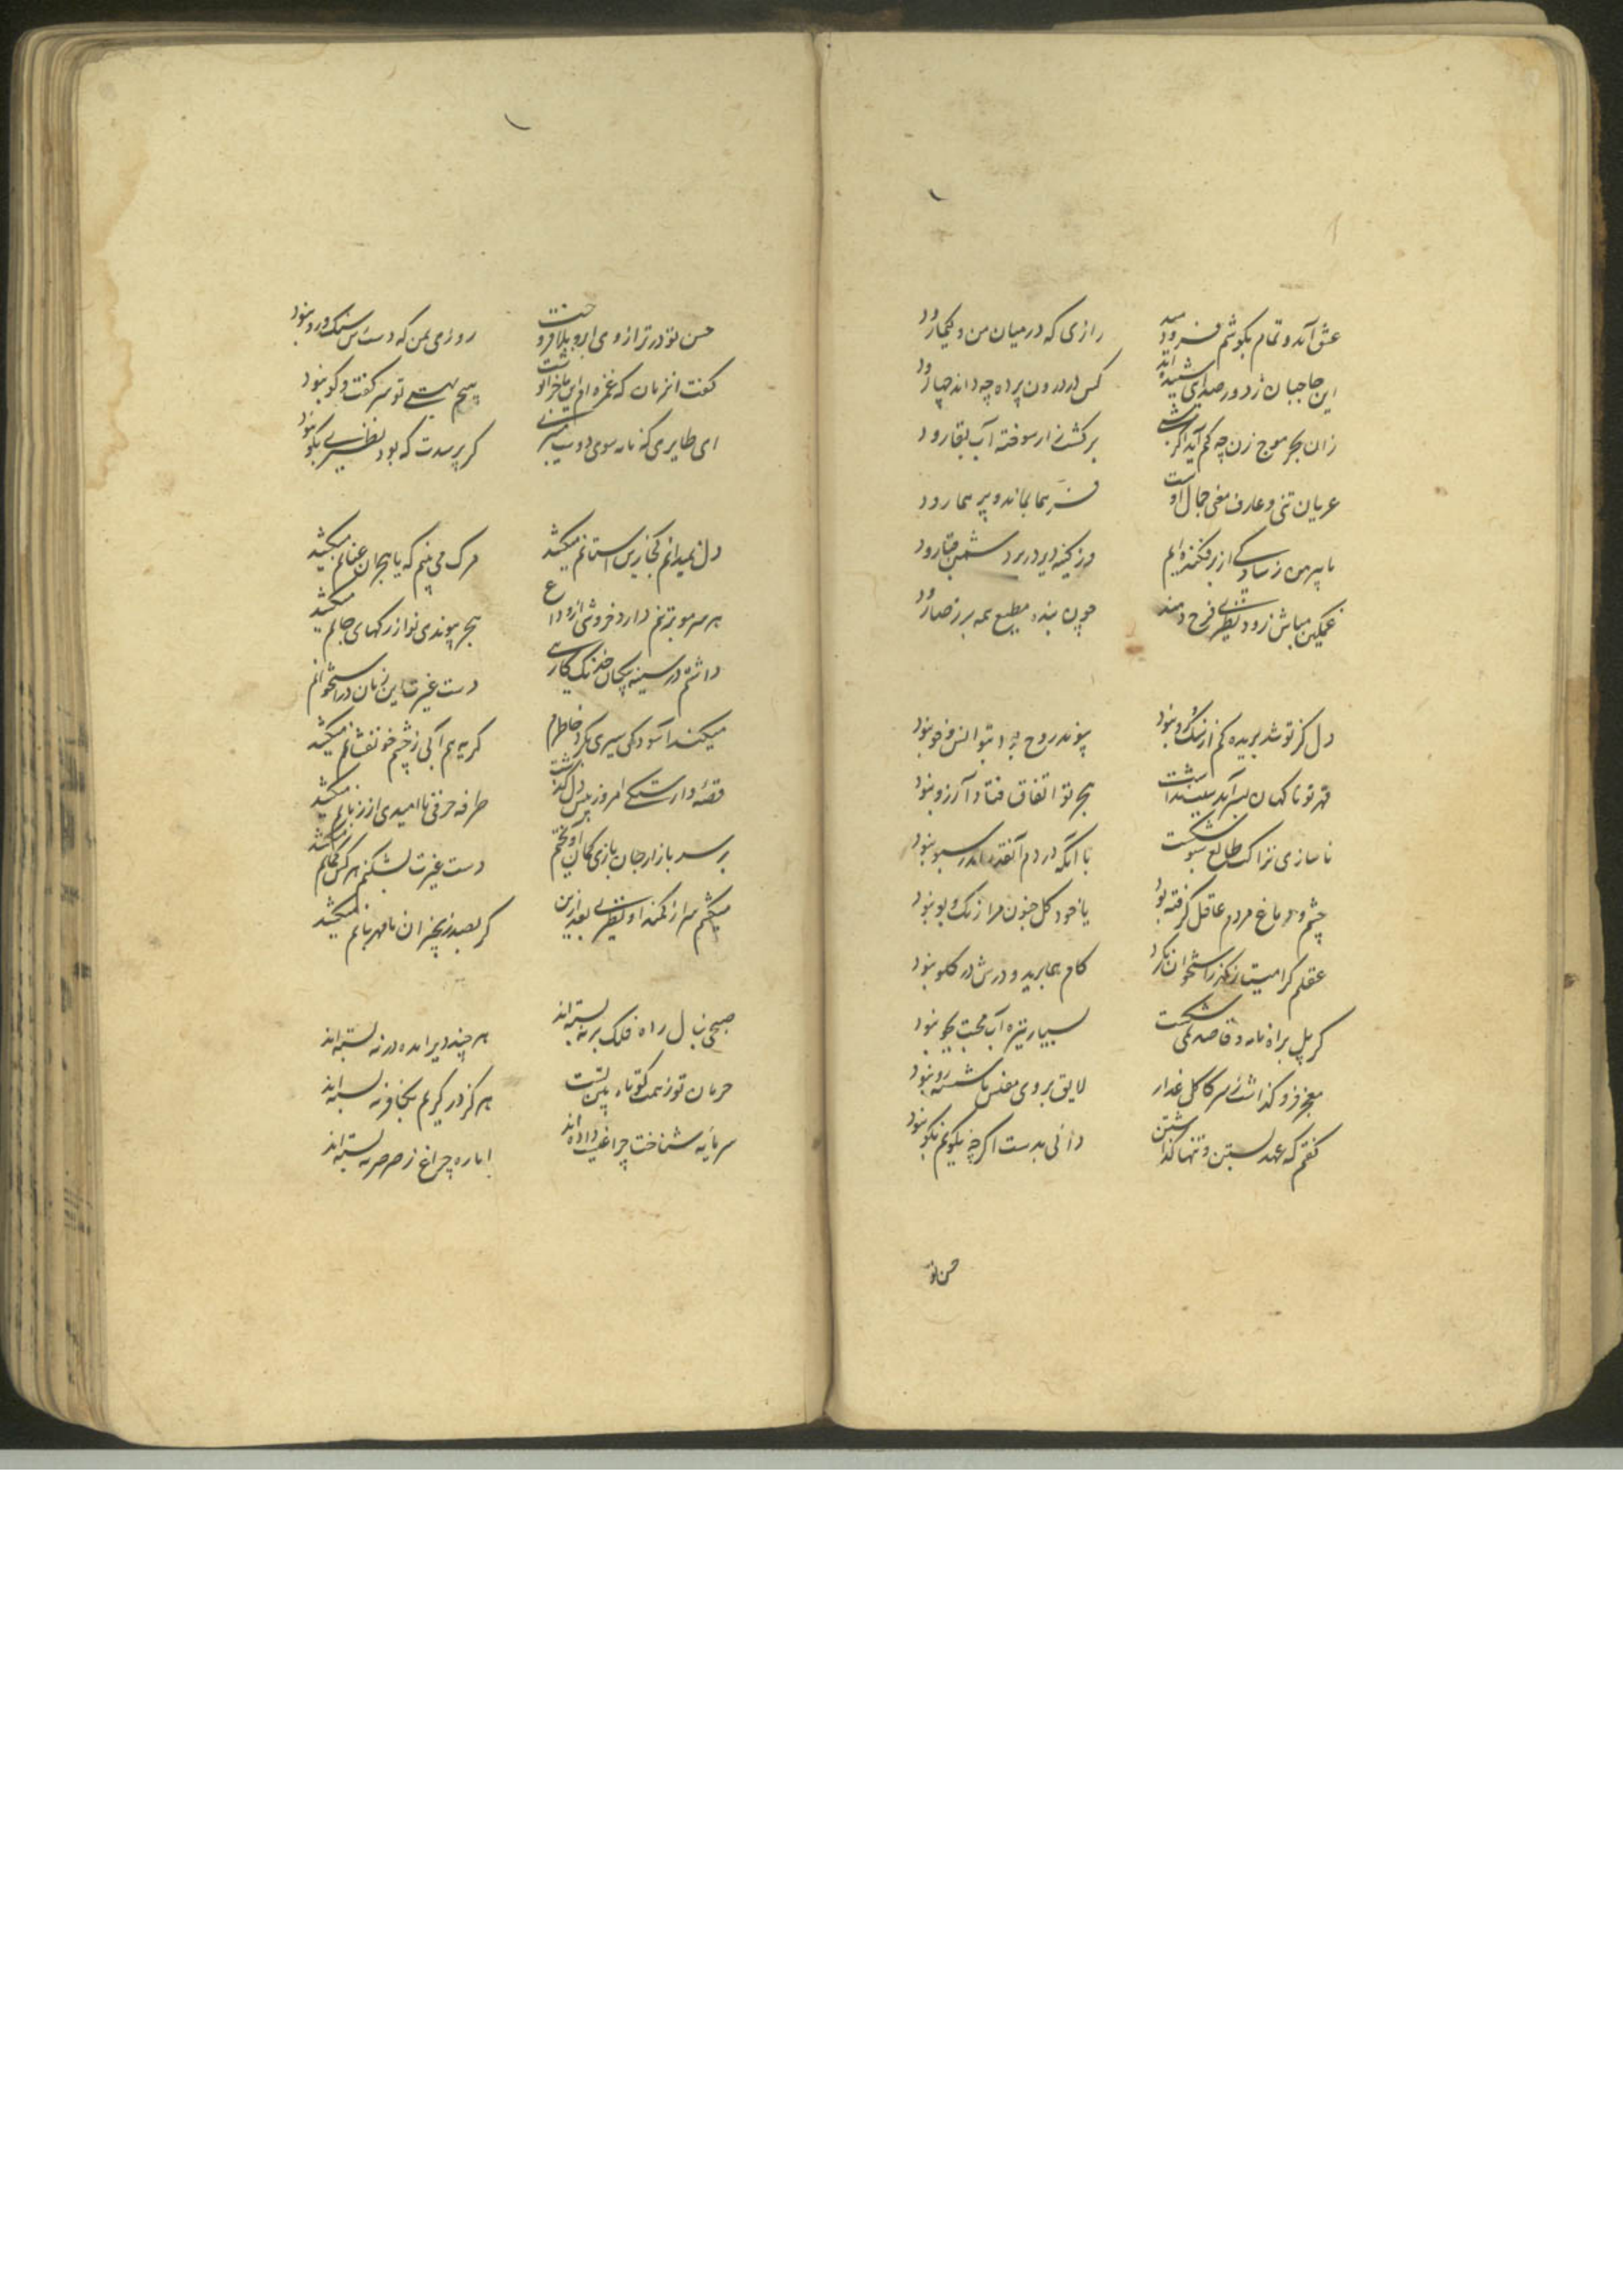 عشق آمد و تمام بگوشم فرو دمید
رازی که در میان من و کیمیا رود
این حاجبان ز دور صدای شنیده اند
کس در درون پرده چه داند چها رود
زان بحر موج زن چه کم آید اگر
بر کشت زار سوخته آب بقا رود
عریان تنی و عارف معنی جمال اوست
فر هما بماند و پر هما رود
ما پیرهن ز سادگی از بر فکنده ایم
ورنه کینه دیر در بر دشمن قبا رود
غمگین مباش زود نظیری فرح دمند
چون بنده مطیع همه بر رضا رود
دل کز تو شد بریده کم از سنگ و رو نبود
پیوند روح را بتو انس و خو نبود
قهر تو ناگهان بسر آمد
هجر تو اتفاق فتاد آرزو نبود
ناسازی نزاکت طالع سبو شکست
با آنکه دردم آنقدر اندر سبو نبود
چشم و دماغ مردم عاقل گرفته بود
یا خود گل جنون مرا رنگ و بو نبود
عقلم کرامت از گذر استخوان نکرد
کام هما برید و درش در گلو نبود
گر پل براه نامه و قاصد همی شکست
بسیار تیزه آب محبت بجو نبود
معجز فرو گذاشت ز سر کاکل غدار
لایق بروی مفلس ما شست و رو نبود
گفتم که عهد بستن و تنها گذاشتن
دانی بدست اگر چه بگویم نکو نبود
حسن تو
حسن تو در ترازوی ابرو بلا فروخت
روزی بمن که دست س سنگ و رو نبود
گفت انزمان که غمزه ام این ماجرا نوشت
هیچم بهستی تو سر گفت و گو نبود
ای طایری که نامه سوی دوست میبری
گر پرسدت که بود نظیری بگو نبود
دل نمیدانم کجا زین استانم میکشد
مرگ می بینم که با هجران عنانم میکشد
هر سر مو بر تنم دارد خروشی از وداع
هجر پیوندی تو از رگهای جانم میکشد
داشتم در سینه پیکان خدنگ کاری
دست غیرت این زمان در استخوانم
میکند آسودگی سیری بگرد خاطرم
گریه هم آبی ز چشم خونفشانم میکشد
قصه وارستگی امروز بس دل گذشت
طرفه حرفی ناامیدی از زبانم میکشد
بر سر بازار جان بازی کمان آویختم
دست غیرت بشکنم هر کس کمانم میکشد
میکشم سر از کمند او نظیری بعد ازین
گر بصد زنجیر ان نامهربانم میکشد
صبحی بنال راه فلک بر نه بسته اند
هر چند دیر امده در نه بسته اند
حرمان تو ز همت کوتاه بین تست
هرگز در کریم بکافر نه بسته اند
سرمایه شناخت چراغیست داده اند
اما ره چراغ ز صرصر نه بسته اند